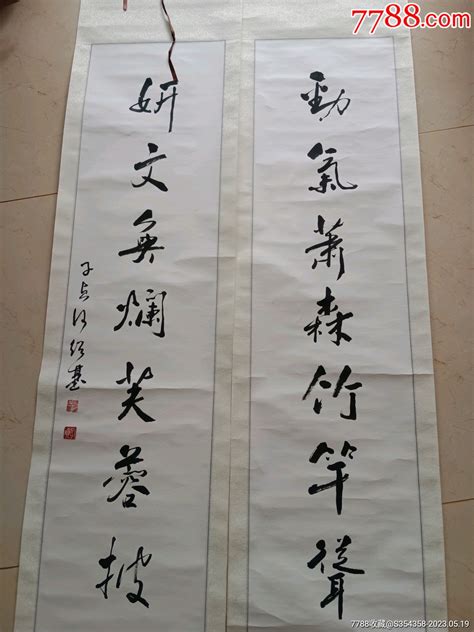 7788.com
劲氣萧森竹竿聳
妍文奂爛芙蓉披
7788收藏@S354358-2023.05.19